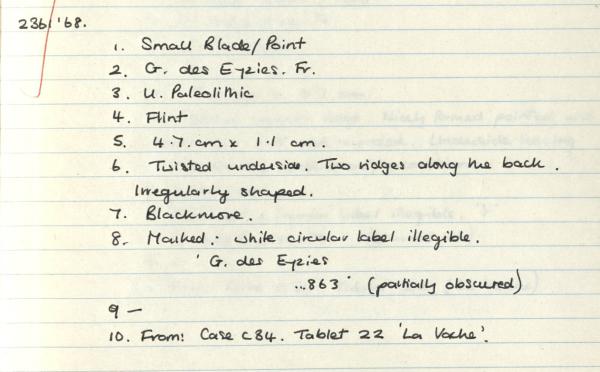 236 '68.
1. Small Blade/Point
2. G. des Eyzies. Fr.
3. U. Paleolithic
4. Flint
5. 4.7. cm x 1.1 cm.
6. Twisted underside. Two ridges along the back.
Irregularly shaped.
7. Blackmore.
8. Marked: white circular label illegible.
'G. des Eyzies
...863' (partially obscured)
9 —
10. From: Case C84. Tablet 22 'La Vache'.